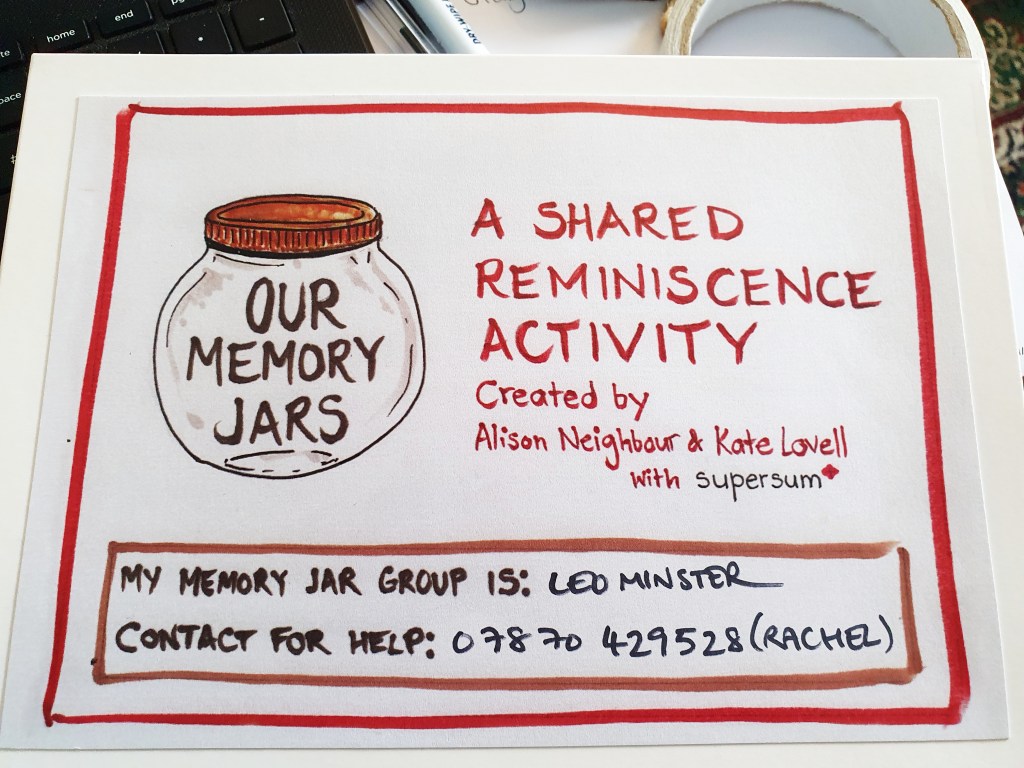 home
end
DRY WIPE
OUR
MEMORY
JARS
A SHARED
REMINISCENCE
ACTIVITY
Created by
Alison Neighbour & Kate Lovell
with supersum
MY MEMORY JAR GROUP IS: LEOMINSTER
CONTACT FOR HELP: 07870 429528 (RACHEL)